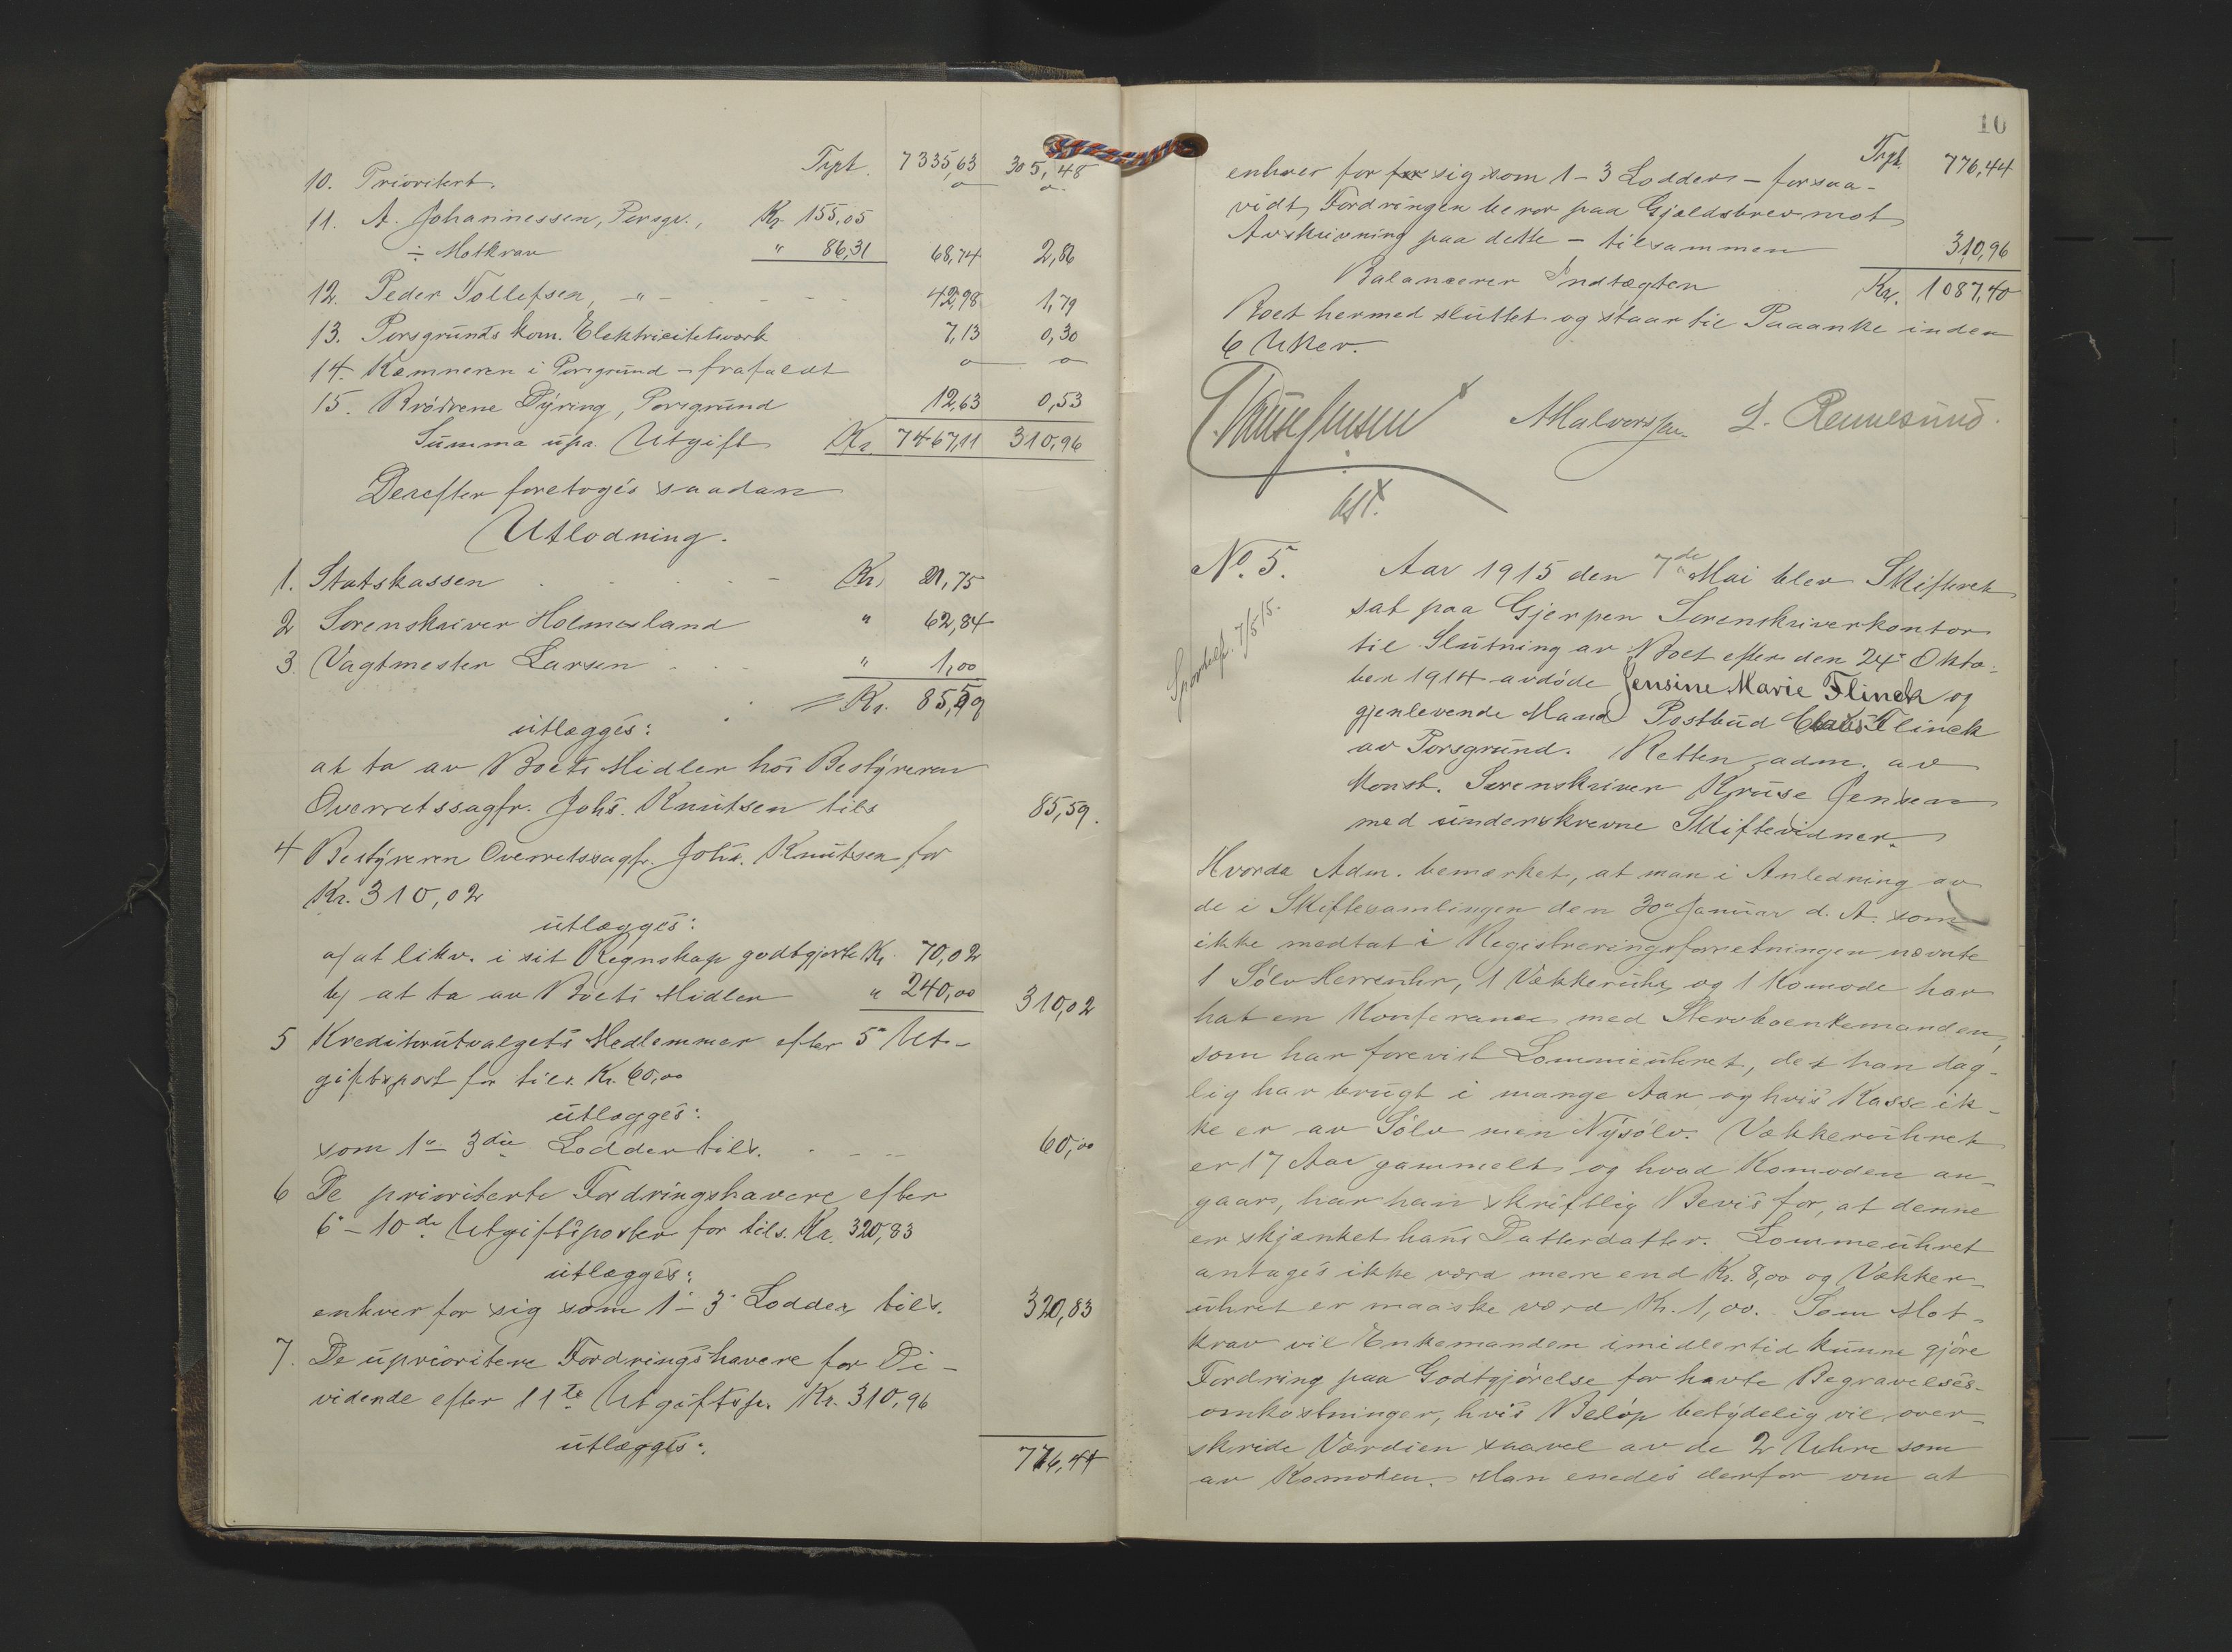 Trpt. 7335,63 305,48
10. Prioritert o o
11. A. Johannessen, Porsgr., Kr. 155,05
÷ Motkrav " 86,31 68,74 2,86
12. Peder Tollefsen, -"- 42,98 1,79
13. Porsgrunds kom. Elektricitetsverk 7,13 0,30
14. Kæmneren i Porsgrund - frafaldt o o
15. Brødrene Dyring, Porsgrund 12,63 0,53
Summa upr. Utgift Kr. 7467,11 310,96
Derefter foretoges saadan
Utlodning.
1. Statskassen Kr. 21,75
2 Sorenskriver Holmesland " 62,84
3. Vagtmester Larsen " 1,00
= Kr. 85,59
utlægges:
at ta av Boets Midler hos Bestyreren
Overretssagfr. Johs. Knutsen tils 85,59.
4 Bestyreren Overretssagfr. Johs. Knutsen for
Kr. 310,02
utlægges:
a/ at likv. i sit Regnskap godtgjorte Kr. 70,02
b/ at ta av Boets Midler " 240,00 310,02
5 Kreditorutvalgets Medlemmer efter 5te Ut-
giftspost for tils. Kr. 60,00
utlægges:
som 1ste - 3die Lodder tils. 60,00
6 De prioriterte Fordringshavere efter
6te - 10de Utgiftsposter for tils. Kr. 320,83
utlægges:
enhver for sig som 1 - 3 Lodder tils. 320,83
7. De uprioritere Fordringshavere for Di-
vidende efter 11te Utgiftsp. Kr. 310,96
utlægges: 776,44
10
Trpt. 776,44
enhver for sig som 1 - 3 Lodder - forsaa-
vidt Fordringen beror paa Gjældsbrev mot
Avskrivning paa dette - tilsammen 310,96
Balancerer Indtægten Kr. 1087,40
Boet hermed sluttet og staar til Paaanke inden
6 Uker.
Kruse Jensen AHalvorsen L. Rennesund.
Kst.
No. 5. Aar 1915 den 7de Mai blev Skifteret
sat paa Gjerpen Sorenskriverkontor
Sportelp. 7/5 15.
til Slutning av Boet efter den 24de Okto-
ber 1914 avdøde Jensine Marie Flinck og
gjenlevende Mand Postbud Claus Flinck
av Porsgrund. Retten adm. av
Konst. Sorenskriver Kruse Jensen
med underskrevne Skiftevidner.
Hvorda Adm. bemærket, at man i Anledning av
de i Skiftesamlingen den 30te Januar d. A. som
ikke medtat i Registreringsforretningen nævnte
1 Sølv Herreuhr, 1 Vækkeruhr og 1 Komode har
hat en Konferance med Stervboenkemanden,
som har forevist Lommeuhret, det han dag-
lig har brugt i mange Aar og hvis Kasse ik-
ke er av Sølv men Nysølv. Vækkeruhret
er 17 Aar gammelt og hvad Komoden an-
gaar, har han skriftlig Bevis for, at denne
er skjænket hans Datterdatter. Lommeuhret
antages ikke værd mere end Kr. 8,00 og Vækker-
uhret er maaske værd Kr. 1,00. Som Mot-
krav vil Enkemanden imidlertid kunne gjøre
Fordring paa Godtgjørelse for havte Begravelses-
omkostninger, hvis Beløp betydelig vil over-
skride Værdien saavel av de 2 Uhre som
av Komoden. Man enedes derfor om at